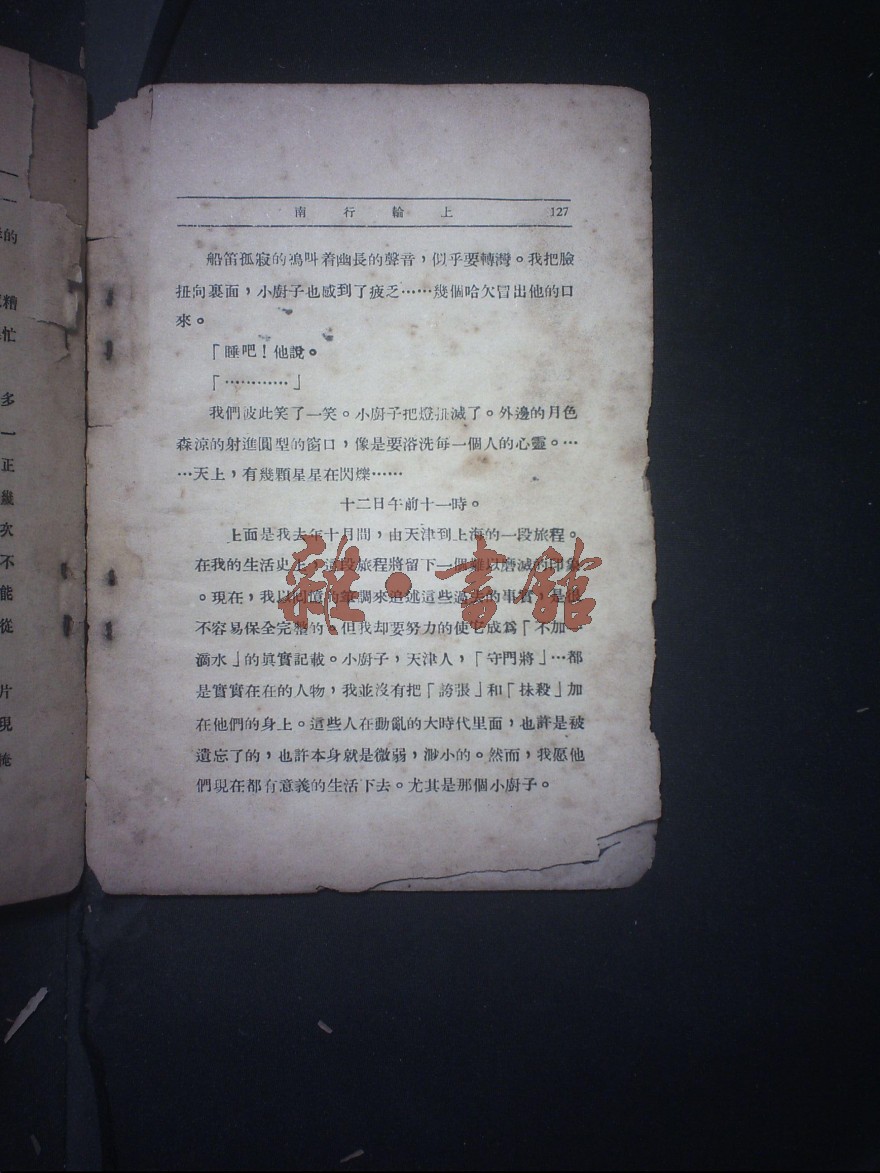 南行輪上 127
船笛孤寂的鳴叫着幽長的聲音，似乎要轉灣。我把臉
扭向裏面，小廚子也感到了疲乏……幾個哈欠冒出他的口
來。
「睡吧！他說。
「…………」
我們彼此笑了一笑。小廚子把燈扭滅了。外邊的月色
森涼的射進圓型的窗口，像是要浴洗每一個人的心靈。…
…天上，有幾顆星星在閃爍……
十二日午前十一時。
上面是我去年十月間，由天津到上海的一段旅程。
在我的生活史上，這段旅程將留下一個難以磨滅的印象
。現在，我以回憶的筆調來追述這些過去的事實，是很
不容易保全完整的。但我却要努力的使它成爲「不加一
滴水」的眞實記載。小廚子，天津人，「守門將」…都
是實實在在的人物，我並沒有把「誇張」和「抹殺」加
在他們的身上。這些人在動亂的大時代里面，也許是被
遺忘了的，也許本身就是微弱，渺小的。然而，我愿他
們現在都有意義的生活下去。尤其是那個小廚子。
雜·書館
的
糟
忙
多
一
正
幾
次
不
能
從
片
現
掩